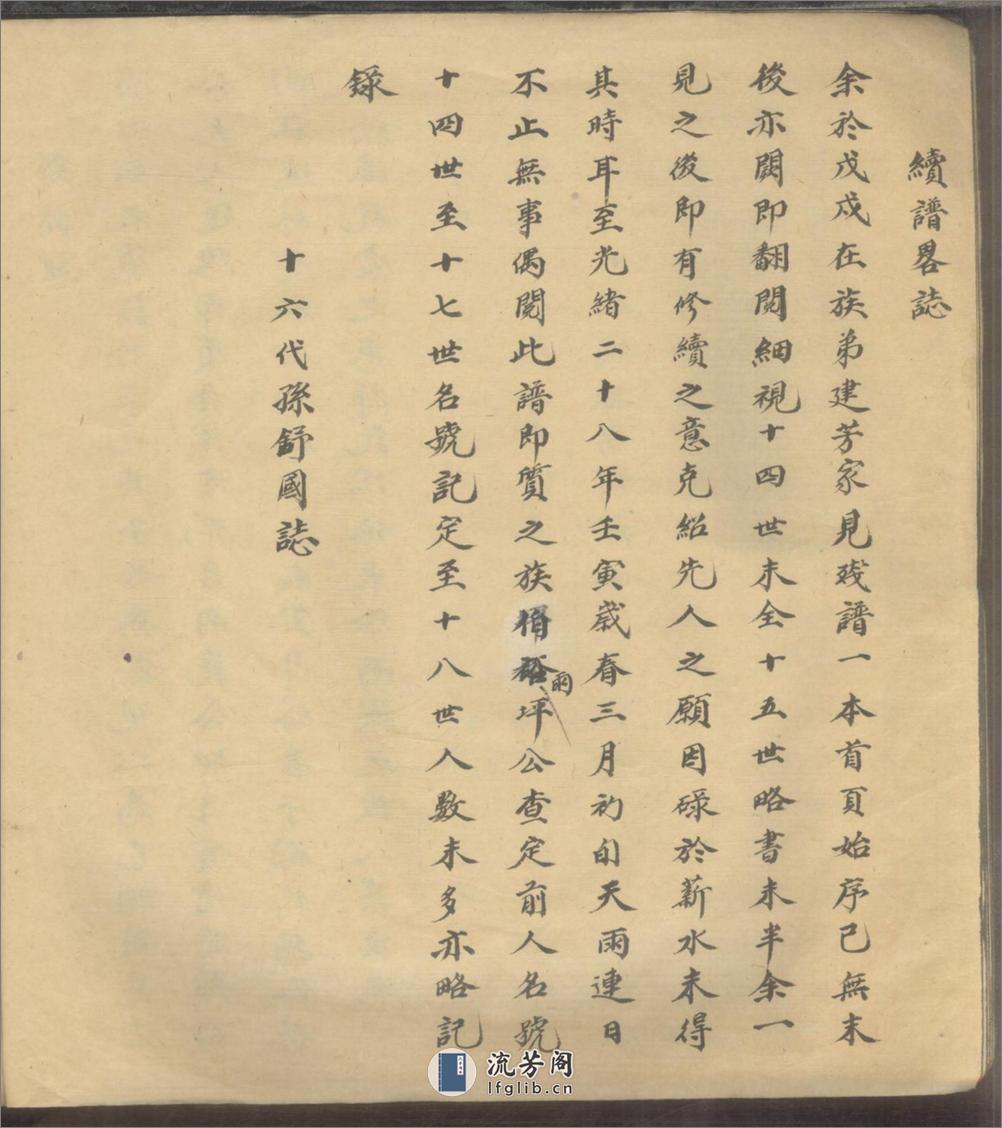 續譜畧誌
余於戊戌在族弟建芳家見残譜一本首頁始序已無末
後亦闕即翻閱細視十四世未全十五世略書未半余一
見之後即有修續之意克紹先人之願因碌於薪水未得
其時耳至光緒二十八年壬寅歲春三月初旬天雨連日
不止無事偶閱此譜即質之族雨坪公查定前人名號
十四世至十七世名號記定至十八世人數未多亦略記
錄
十六代孫舒國誌
流芳阁
lfglib.cn